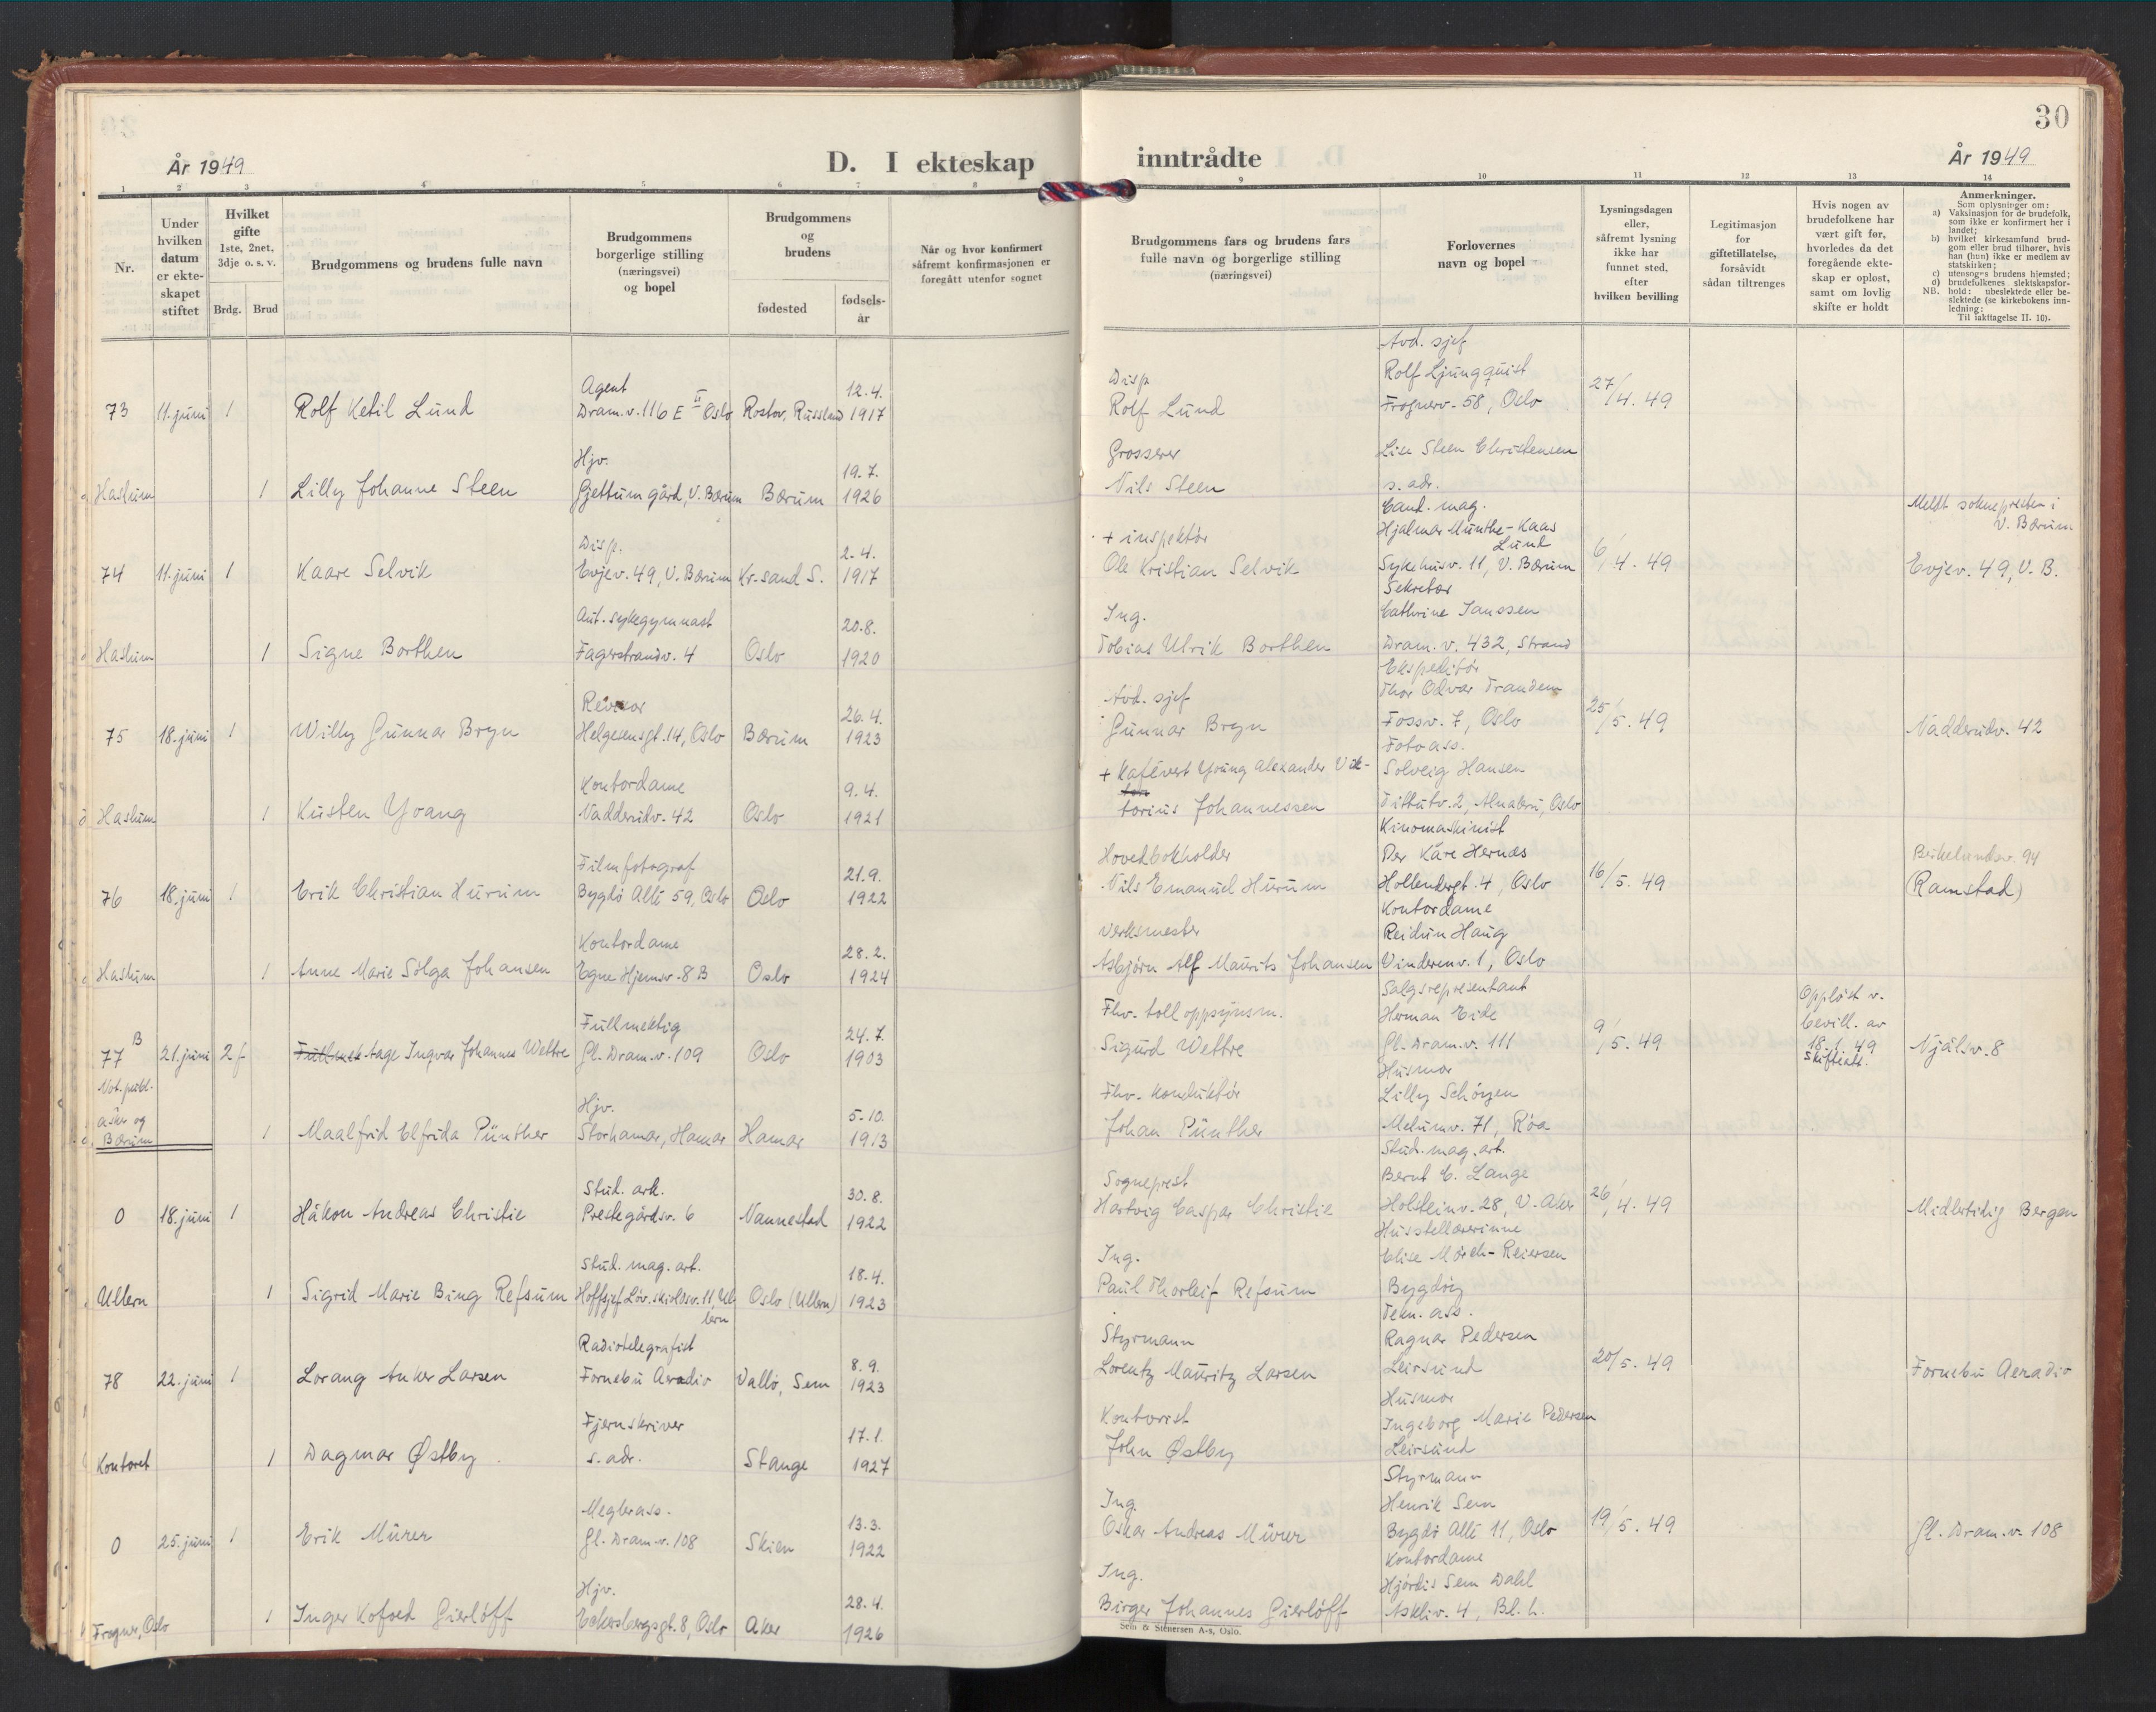 30
År 1949
D. I ekteskap
inntrådte
År 1949
1 2 3 4 5 6 7 8 9 10 11 12 13 14
Nr.
Under hvilken datum er ekteskapet stiftet
Hvilket gifte
1ste, 2net, 3dje o. s. v.
Brdg. Brud
Brudgommens og brudens fulle navn
Brudgommens borgerlige stilling (næringsvei) og bopel
Brudgommens og brudens
fødested
fødsels-år
Når og hvor konfirmert såfremt konfirmasjonen er foregått utenfor sognet
Brudgommens fars og brudens fars fulle navn og borgerlige stilling (næringsvei)
Forlovernes navn og bopel
Lysningsdagen eller, såfremt lysning ikke har funnet sted, efter hvilken bevilling
Legitimasjon for giftetillatelse, forsåvidt sådan tiltrenges
Hvis nogen av brudefolkene har vært gift før, hvorledes da det foregående ekteskap er opløst, samt om lovlig skifte er holdt
Anmerkninger.
Som oplysninger om:
a) Vaksinasjon for de brudefolk, som ikke er konfirmert her i landet;
b) hvilket kirkesamfund brudgom eller brud tilhører, hvis han (hun) ikke er medlem av statskirken;
c) utensogns brudens hjemsted;
d) brudefolkenes slektskapsforhold: ubeslektede eller beslektede (se kirkebokens innledning:
NB. Til iakttagelse II. 10).
73 11. juni 1 Rolf Ketil Lund Agent Dram.v. 116 E II Oslo Rostov, Russland 12.4. 1917 Disp Rolf Lund Avd. sjef Rolf Ljungquist Frognerv. 58, Oslo 27/4. 49
Haslum 1 Lilly Johanne Steen Hjv. Gjettum gård, V. Bærum Bærum 19.7. 1926 Grosserer Nils Steen Lise Steen Christensen s. adr.
74 11. juni 1 Kaare Selvik Disp. Evjev. 49, V. Bærum Kr.sand S. 2.4. 1917 + inspektør Ole Kristian Selvik Cand. mag. Hjalmar Munthe-Kaas Lund Sykehusv. 11, V. Bærum 6/4. 49 Meldt soknepresten i V. Bærum Evjev. 49, V. B.
Haslum 1 Signe Borthen Aut. sykegymnast Fagerstrandv. 4 Oslo 20.8. 1920 Ing. Tobias Ulrik Borthen Sekretær Cathrine Janssen Dram. v. 432, Strand
75 18. juni 1 Willy Gunnar Bryn Revisor Helgesensgt. 14, Oslo Bærum 26.4. 1923 Avd. sjef Gunnar Bryn Ekspeditør Thor Odvar Trandem Fossv. 7, Oslo 25/5. 49 Nadderudv. 42
Haslum 1 Kirsten Young Kontordame Nadderudv. 42 Oslo 9.4. 1921 + Kafévert Young Alexander Viktorius Johannessen Fotoass. Solveig Hansen Tittutv. 2, Alnabru, Oslo
76 18. juni 1 Erik Christian Hurum Filmfotograf Bygdø Allé 59, Oslo Oslo 21.9. 1922 Hovedbokholder Nils Emanuel Hurum Kinomaskinist Per Kåre Hernes Hollendergt. 4, Oslo 16/5. 49 (Ramstad)
Haslum 1 Anne Marie Solga Johansen Kontordame Egne Hjemsv. 8 B Oslo 28.2. 1924 Verksmester Asbjørn Alf Maurits Johansen Kontordame Reidun Haug Vinderenv. 1, Oslo
77 B 21. juni 2 f Tage Ingvar Johannes Wettre Fullmektig Gl. Dram.v. 109 Oslo 24.7. 1903 Fhv. tolloppsynsm. Sigurd Wettre Salgsrepresentant Herman Eide Gl. Dram.v. 111 9/5. 49 Oppløst v. bevill. av 18.1.49 Skifteatt. Njålsv. 8
Not. publ. Asker og Bærum 1 Maalfrid Elfrida Pünther Hjv. Storhamar, Hamar Hamar 5.10. 1913 Fhv. konduktør Johan Pünther Husmor Lilly Schøyen Melumv. 71, Røa
0 18. juni 1 Håkon Andreas Christie Stud. ark. Prestegårdsv. 6 Nannestad 30.8. 1922 Sogneprest Hartvig Caspar Christie Stud. mag. art. Bernt C. Lange Holsteinv. 28, V. Aker 26/4. 49 Midlertidig Bergen
Ullern 1 Sigrid Marie Bing Refsum Stud. mag. art. Hoffsjef Løv.skioldsv. 11, Ullern Oslo (Ullern) 18.4. 1923 Ing. Paul Thorleif Refsum Husstellærerinne Elise Mørch-Reiersen Bygdøy
78 22. juni 1 Lorang Anker Larsen Radiotelegrafist Fornebu Aeradio Vallø, Sem 8.9. 1923 Styrmann Lorentz Mauritz Larsen Tekn. ass. Ragnar Pedersen Leirsund 20/5. 49 Fornebu Aeradio
Kontoret 1 Dagmar Østby Fjernskriver s. adr. Stange 17.1. 1927 Kontorist John Østby Husmor Ingeborg Marie Pedersen Leirsund
0 25. juni 1 Erik Mürer Meglerass. Gl. Dram.v. 108 Skien 13.3. 1922 Ing. Oskar Andreas Mürer Styrmann Henrik Sem Bygdø Allé 11, Oslo 19/5. 49 Gl. Dram.v. 108
Frogner, Oslo 1 Inger Kofoed Gierløff Hjv. Eckersbergsgt. 8, Oslo Aker 28.4. 1926 Ing. Birger Johannes Gierløff Kontordame Hjørdis Sem Dahl Askliv. 4, Bl. h.
Sem & Stenersen A-s, Oslo.